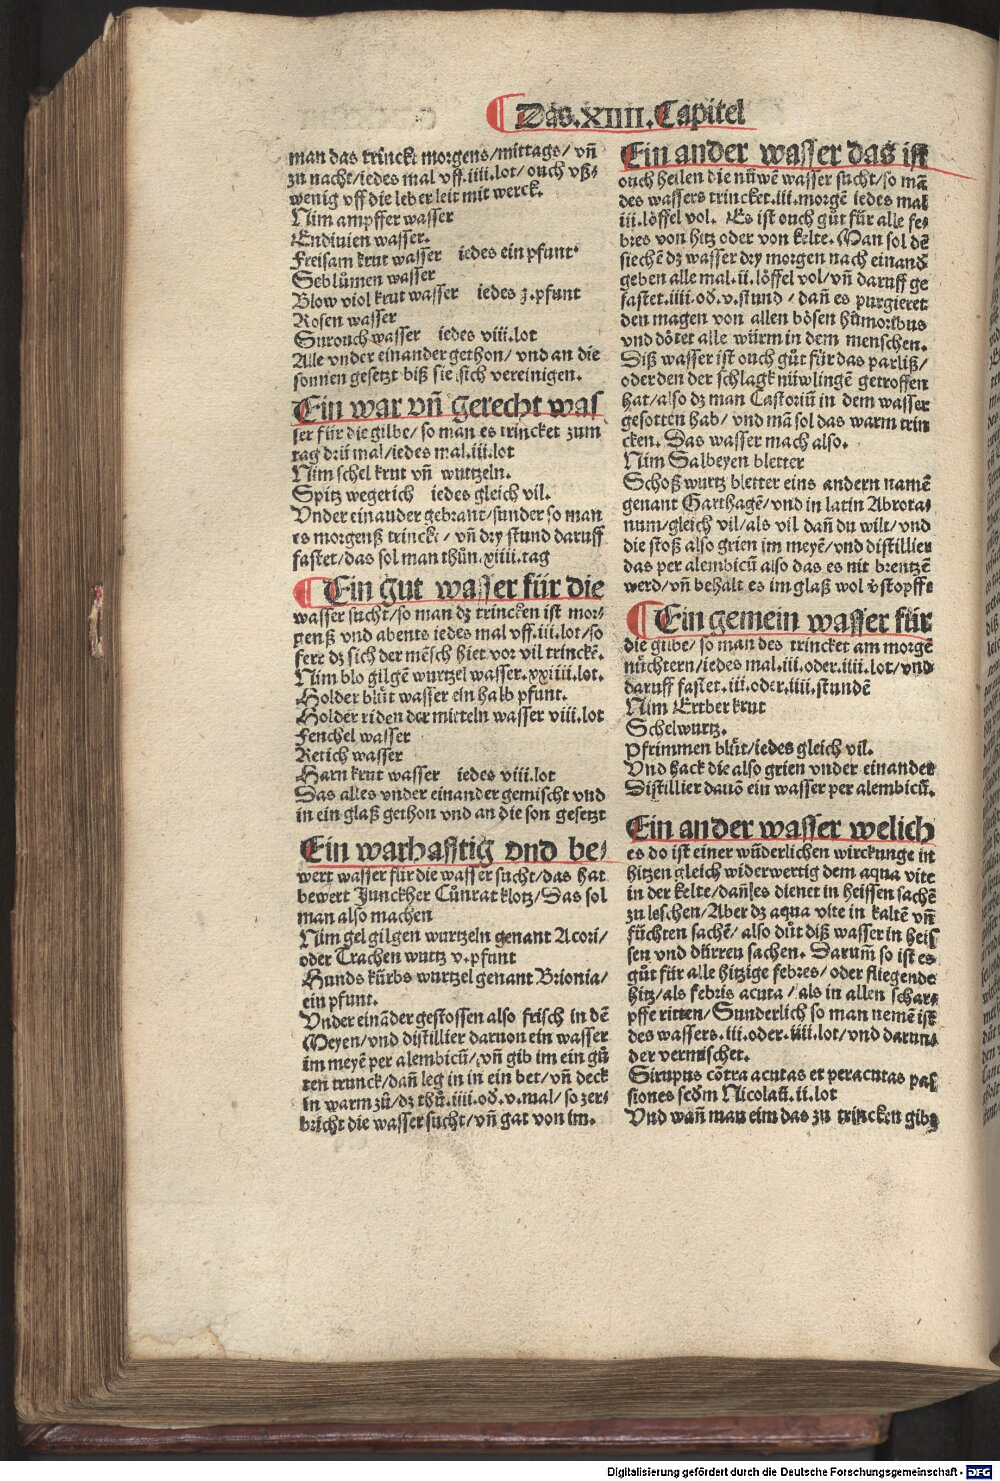 Das.XIIII.Capitel
man das trinckt morgens/mittags/ vñ
zů nacht/iedes mal vff.iiii.lot/ouch vß⸗
wenig vff die leber leit mit werck.
Nim ampffer wasser
Endiuien wasser.
Freisam krut wasser iedes ein pfunt
Seblůmen wasser
Blow viol krut wasser iedes ʒ.pfunt
Rosen wasser
Surouch wasser iedes viii.lot
Alle vnder einander gethon/ vnd an die
sonnen gesetzt biß sie sich vereinigen.
Ein war vñ gerecht was
ser für die gilbe/so man es trincket zum
tag drü mal/iedes mal.iii.lot
Nim schel krut vñ wurtzeln.
Spitz wegerich iedes gleich vil.
Vnder einander gebrant/sunder so man
es morgenß trinckt/ vñ dry stund daruff
fastet/das sol man thůn.xiiii.tag
Ein gut wasser für die
wasser sucht/so man dz trincken ist mor⸗
genß vnd abents iedes mal vff.iii.lot/so
fere dz sich der mēsch hiet vor vil trinckē.
Nim blo gilgē wurtzel wasser.xxiiii.lot.
Holder blůt wasser ein halb pfunt.
Holder riden der mitteln wasser viii.lot
Fenchel wasser
Retich wasser
Harn krut wasser iedes viii.lot
Das alles vnder einander gemischt vnd
in ein glaß gethon vnd an die son gesetzt
Ein warhafftig vnd be⸗
wert wasser für die wasser sucht/das hat
bewert Junckher Cůnrat klotz/Das sol
man also machen
Nim gel gilgen wurtzeln genant Acori/
oder Trachen wurtz v.pfunt
Hunds kürbs wurtzel genant Brionia/
ein pfunt.
Vnder eināder gestossen also frisch in dē
Meyen/vnd distillier daruon ein wasser
im meyē per alembicū/vñ gib im ein gů
ten trunck/dañ leg in in ein bet/vñ deck
in warm zů/dz thů.iiii.od̕.v.mal/ so zer⸗
bricht die wasser sucht/vñ gat von im.
Ein ander wasser das ist
ouch heilen die nüwē wasser sucht/so mā
des wassers trincket.iii.morgē iedes mal
iii.löffel vol. Es ist ouch gůt für alle fe⸗
bres von hitz oder von kelte. Man sol dē
siechē dz wasser dry morgen nach einand̕
geben alle mal.ii.löffel vol/vñ daruff ge
fastet.iiii.od̕.v.stund/ dañ es purgieret
den magen von allen bösen hůmoribus
vnd dötet alle würm in dem menschen.
Diß wasser ist ouch gůt für das parliß/
oder den der schlagk nüwlingē getroffen
hat/also dz man Castoriū in dem wasser
gesotten hab/ vnd mā sol das warm trin
cken. Das wasser mach also.
Nim Salbeyen bletter
Schoß wurtz bletter eins andern namē
genant Garthagē/vnd in latin Abrota⸗
num/gleich vil/als vil dañ du wilt/vnd
die stoß also grien im meyē/vnd distillier
das per alembicū also das es nit brentzē
werd/vñ behalt es im glaß wol v̕stopfft
Ein gemein wasser für
die gilbe/so man des trincket am morgē
nüchtern/iedes mal.iii.oder.iiii.lot/vnd
daruff fastet.iii.oder.iiii.stundē
Nim Ertber krut
Schelwurtz.
Pfrimmen blůt/iedes gleich vil.
Vnd hack die also grien vnder einander
Distillier dauō ein wasser per alembicū.
Ein ander wasser welich
es do ist einer wūderlichen wirckunge in
hitzen gleich widerwertig dem aqua vite
in der kelte/dañ es dienet in heissen sachē
zu leschen/Aber dz aqua vite in kaltē vñ
füchten sachē/ also důt diß wasser in heis
sen vnd dürren sachen. Darum̄ so ist es
gůt für alle hitzige febres/oder fliegende
hitz/als febris acuta/als in allen schar⸗
pffe ritten/Sunderlich so man nemē ist
des wassers.iii.oder.iiii.lot/vnd darun⸗
der vermischet.
Sirupus cōtra acutas et peracutas pas
siones scd̕m Nicolaū.ii.lot
Vnd wañ man eim das zu trincken gibt
Digitalisierung gefördert durch die Deutsche Forschungsgemeinschaft - DFG